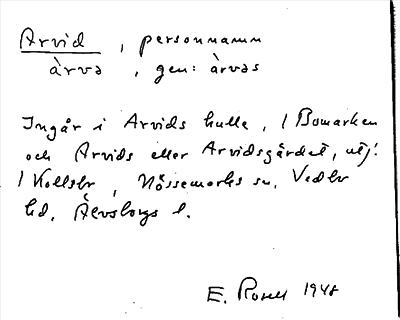 Arvid, personnamn
àrvə, gen: àrvəs
Ingår i Arvids kulle, 1 Bomarken
och Arvids eller Arvidsgärdet, utj.
1 Kollsbr, Nössemarks sn, Vedbr
hd, Älvsborgs l.
E. Rosell 1948